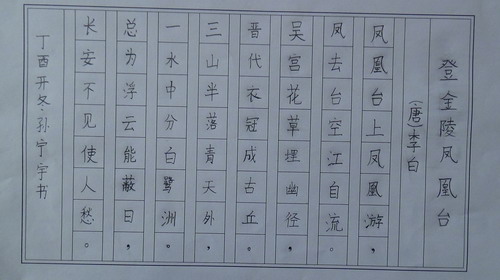 登金陵凤凰台
(唐)李白
凤凰台上凤凰游,
凤去台空江自流。
吴宫花草埋幽径,
晋代衣冠成古丘。
三山半落青天外,
一水中分白鹭洲。
总为浮云能蔽日,
长安不见使人愁。
丁酉开冬·孙宇宇书